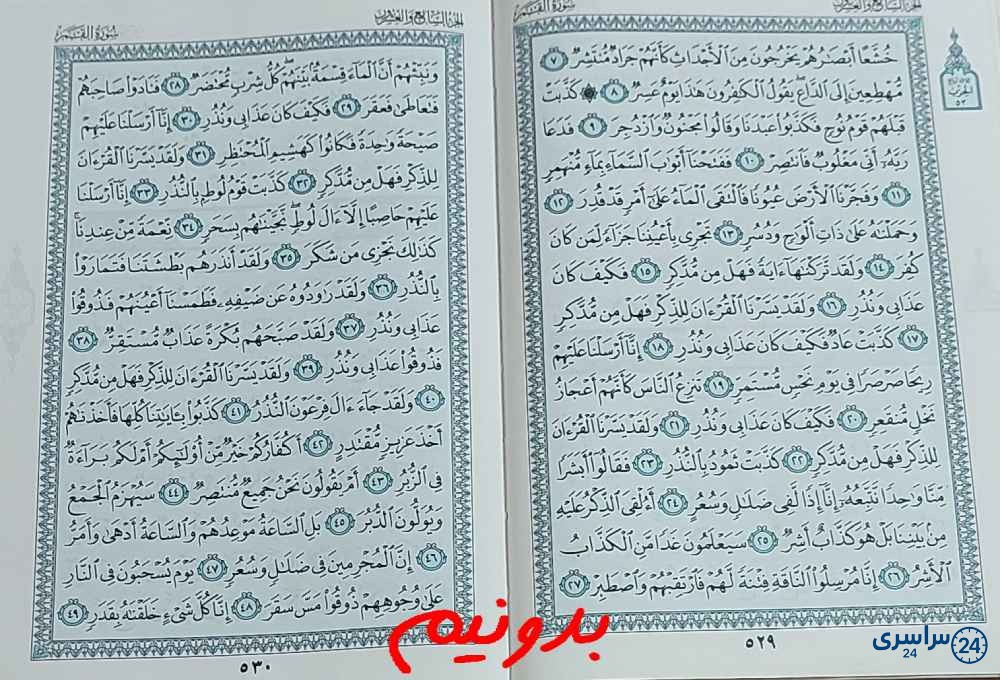 سورة القمر
الجزء السابع والعشرون
خُشَّعًا أَبْصَٰرُهُمْ يَخْرُجُونَ مِنَ ٱلْأَجْدَاثِ كَأَنَّهُمْ جَرَادٌ مُّنتَشِرٌ ٧
مُّهْطِعِينَ إِلَى ٱلدَّاعِ يَقُولُ ٱلْكَٰفِرُونَ هَٰذَا يَوْمٌ عَسِرٌ ٨ ۞ كَذَّبَتْ
قَبْلَهُمْ قَوْمُ نُوحٍ فَكَذَّبُوا۟ عَبْدَنَا وَقَالُوا۟ مَجْنُونٌ وَٱزْدُجِرَ ٩ فَدَعَا
رَبَّهُۥٓ أَنِّى مَغْلُوبٌ فَٱنتَصِرْ ١٠ فَفَتَحْنَآ أَبْوَٰبَ ٱلسَّمَآءِ بِمَآءٍ مُّنْهَمِرٍ
١١ وَفَجَّرْنَا ٱلْأَرْضَ عُيُونًا فَٱلْتَقَى ٱلْمَآءُ عَلَىٰٓ أَمْرٍ قَدْ قُدِرَ ١٢
وَحَمَلْنَٰهُ عَلَىٰ ذَاتِ أَلْوَٰحٍ وَدُسُرٍ ١٣ تَجْرِى بِأَعْيُنِنَا جَزَآءً لِّمَن كَانَ
كُفِرَ ١٤ وَلَقَد تَّرَكْنَٰهَآ ءَايَةً فَهَلْ مِن مُّدَّكِرٍ ١٥ فَكَيْفَ كَانَ
عَذَابِى وَنُذُرِ ١٦ وَلَقَدْ يَسَّرْنَا ٱلْقُرْءَانَ لِلذِّكْرِ فَهَلْ مِن مُّدَّكِرٍ
١٧ كَذَّبَتْ عَادٌ فَكَيْفَ كَانَ عَذَابِى وَنُذُرِ ١٨ إِنَّآ أَرْسَلْنَا عَلَيْهِمْ
رِيحًا صَرْصَرًا فِى يَوْمِ نَحْسٍ مُّسْتَمِرٍّ ١٩ تَنزِعُ ٱلنَّاسَ كَأَنَّهُمْ أَعْجَازُ
نَخْلٍ مُّنقَعِرٍ ٢٠ فَكَيْفَ كَانَ عَذَابِى وَنُذُرِ ٢١ وَلَقَدْ يَسَّرْنَا ٱلْقُرْءَانَ
لِلذِّكْرِ فَهَلْ مِن مُّدَّكِرٍ ٢٢ كَذَّبَتْ ثَمُودُ بِٱلنُّذُرِ ٢٣ فَقَالُوٓا۟ أَبَشَرًا
مِّنَّا وَٰحِدًا نَّتَّبِعُهُۥٓ إِنَّآ إِذًا لَّفِى ضَلَٰلٍ وَسُعُرٍ ٢٤ أَءُلْقِىَ ٱلذِّكْرُ عَلَيْهِ
مِنۢ بَيْنِنَا بَلْ هُوَ كَذَّابٌ أَشِرٌ ٢٥ سَيَعْلَمُونَ غَدًا مَّنِ ٱلْكَذَّابُ
ٱلْأَشِرُ ٢٦ إِنَّا مُرْسِلُوا۟ ٱلنَّاقَةِ فِتْنَةً لَّهُمْ فَٱرْتَقِبْهُمْ وَٱصْطَبِرْ ٢٧
٥٢٩
سورة القمر
الجزء السابع والعشرون
وَنَبِّئْهُمْ أَنَّ ٱلْمَآءَ قِسْمَةٌۢ بَيْنَهُمْ كُلُّ شِرْبٍ مُّحْتَضَرٌ ٢٨ فَنَادَوْا۟ صَاحِبَهُمْ
فَتَعَاطَىٰ فَعَقَرَ ٢٩ فَكَيْفَ كَانَ عَذَابِى وَنُذُرِ ٣٠ إِنَّآ أَرْسَلْنَا عَلَيْهِمْ
صَيْحَةً وَٰحِدَةً فَكَانُوا۟ كَهَشِيمِ ٱلْمُحْتَظِرِ ٣١ وَلَقَدْ يَسَّرْنَا ٱلْقُرْءَانَ
لِلذِّكْرِ فَهَلْ مِن مُّدَّكِرٍ ٣٢ كَذَّبَتْ قَوْمُ لُوطٍۭ بِٱلنُّذُرِ ٣٣ إِنَّآ أَرْسَلْنَا
عَلَيْهِمْ حَاصِبًا إِلَّآ ءَالَ لُوطٍ نَّجَّيْنَٰهُم بِسَحَرٍ ٣٤ نِّعْمَةً مِّنْ عِندِنَا
كَذَٰلِكَ نَجْزِى مَن شَكَرَ ٣٥ وَلَقَدْ أَنذَرَهُم بَطْشَتَنَا فَتَمَارَوْا۟
بِٱلنُّذُرِ ٣٦ وَلَقَدْ رَٰوَدُوهُ عَن ضَيْفِهِۦ فَطَمَسْنَآ أَعْيُنَهُمْ فَذُوقُوا۟
عَذَابِى وَنُذُرِ ٣٧ وَلَقَدْ صَبَّحَهُم بُكْرَةً عَذَابٌ مُّسْتَقِرٌّ ٣٨
فَذُوقُوا۟ عَذَابِى وَنُذُرِ ٣٩ وَلَقَدْ يَسَّرْنَا ٱلْقُرْءَانَ لِلذِّكْرِ فَهَلْ مِن مُّدَّكِرٍ
٤٠ وَلَقَدْ جَآءَ ءَالَ فِرْعَوْنَ ٱلنُّذُرُ ٤١ كَذَّبُوا۟ بِـَٔايَٰتِنَا كُلِّهَا فَأَخَذْنَٰهُمْ
أَخْذَ عَزِيزٍ مُّقْتَدِرٍ ٤٢ أَكُفَّارُكُمْ خَيْرٌ مِّنْ أُو۟لَٰٓئِكُمْ أَمْ لَكُم بَرَآءَةٌ
فِى ٱلزُّبُرِ ٤٣ أَمْ يَقُولُونَ نَحْنُ جَمِيعٌ مُّنتَصِرٌ ٤٤ سَيُهْزَمُ ٱلْجَمْعُ
وَيُوَلُّونَ ٱلدُّبُرَ ٤٥ بَلِ ٱلسَّاعَةُ مَوْعِدُهُمْ وَٱلسَّاعَةُ أَدْهَىٰ وَأَمَرُّ
٤٦ إِنَّ ٱلْمُجْرِمِينَ فِى ضَلَٰلٍ وَسُعُرٍ ٤٧ يَوْمَ يُسْحَبُونَ فِى ٱلنَّارِ
عَلَىٰ وُجُوهِهِمْ ذُوقُوا۟ مَسَّ سَقَرَ ٤٨ إِنَّا كُلَّ شَىْءٍ خَلَقْنَٰهُ بِقَدَرٍ ٤٩
٥٣٠
بدونیم
سراسری 24
24